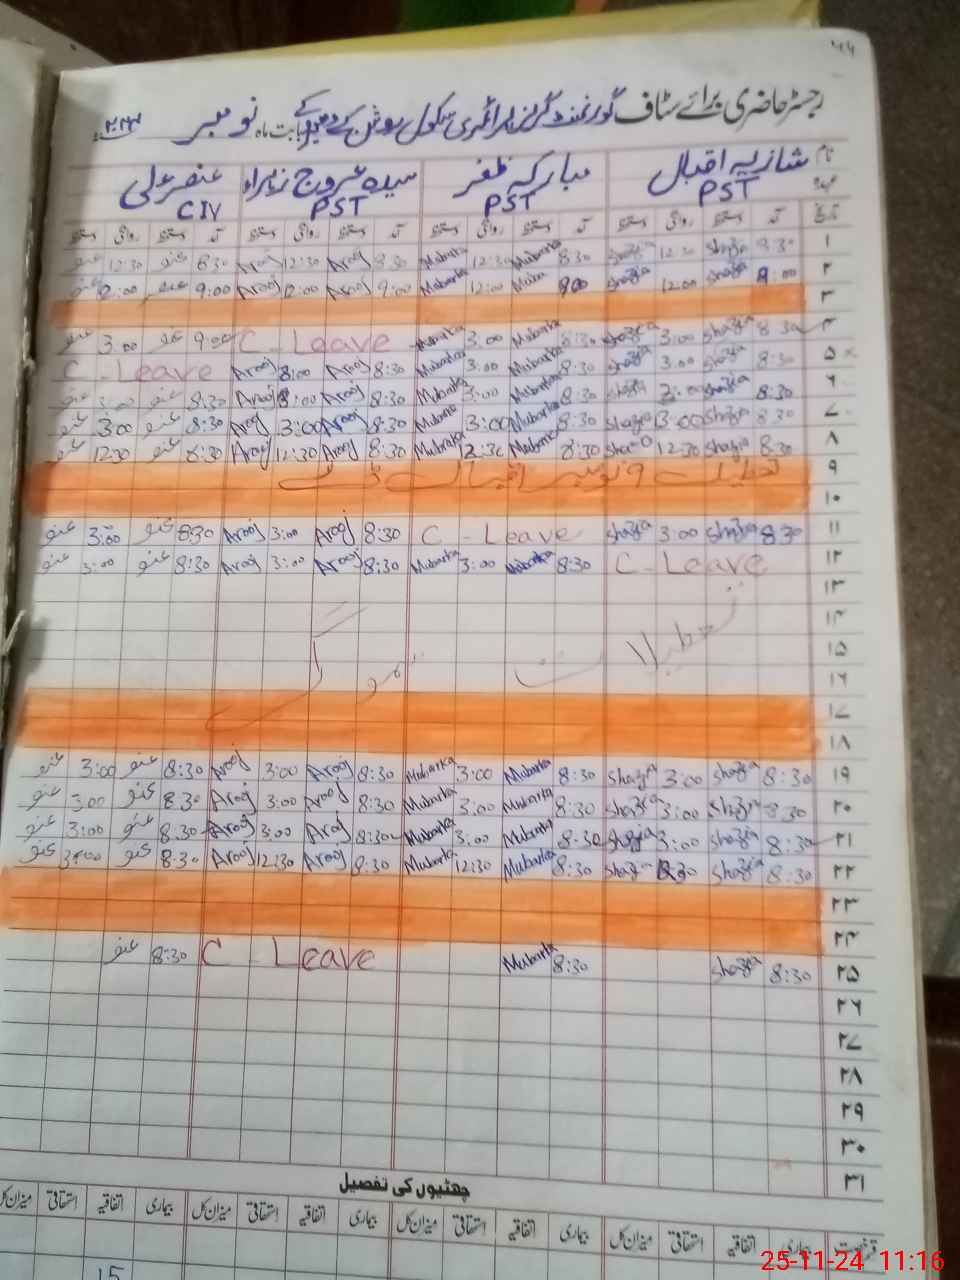 ۴۴
رجسٹر حاضری برائے سٹاف گورنمنٹ گرلز پرائمری سکول بابت ماہ نومبر
نام شازیہ اقبال مبارکہ ظفر سیدہ عروج زہراء عنصر علی
عہدہ PST PST PST CIV
تاریخ آمد دستخط روانگی دستخط آمد دستخط روانگی دستخط آمد دستخط روانگی دستخط آمد دستخط روانگی دستخط
۱ 8:30 Shazia 12:30 Shazia 8:30 Mubarka 12:30 Mubarka 8:30 Arooj 12:30 Arooj 8:30 عنصر 12:30 عنصر
۲ 9:00 Shazia 12:00 Shazia 9:00 Muba 12:00 Mubarka 9:00 Arooj 12:00 Arooj 9:00 عنصر 12:00 عنصر
۳
۴ 8:30 Shazia 3:00 Shazia 8:30 Mubarka 3:00 Mubarka C - Leave 9:00 عنصر 3:00 عنصر
۵ 8:30 Shazia 3:00 Shazia 8:30 Mubarka 3:00 Mubarka 8:30 Arooj 8:00 Arooj C - Leave
۶ 8:30 Shazia 3:00 Shazia 8:30 Mubarka 3:00 Mubarka 8:30 Arooj 8:00 Arooj 8:30 عنصر 3:00 عنصر
۷ 8:30 Shazia 3:00 Shazia 8:30 Mubarka 3:00 Mubarka 8:30 Arooj 3:00 Arooj 8:30 عنصر 3:00 عنصر
۸ 8:30 Shazia 12:30 Shazia 8:30 Mubarka 12:30 Mubarka 8:30 Arooj 12:30 Arooj 8:30 عنصر 12:30 عنصر
۹ تعطیل 9 نومبر اقبال ڈے
۱۰
۱۱ 8:30 Shazia 3:00 Shazia C - Leave 8:30 Arooj 3:00 Arooj 8:30 عنصر 3:00 عنصر
۱۲ C - Leave 8:30 Mubarka 3:00 Mubarka 8:30 Arooj 3:00 Arooj 8:30 عنصر 3:00 عنصر
۱۳
۱۴ تعطیلات
۱۵
۱۶ سموگ
۱۷
۱۸
۱۹ 8:30 Shazia 3:00 Shazia 8:30 Mubarka 3:00 Mubarka 8:30 Arooj 3:00 Arooj 8:30 عنصر 3:00 عنصر
۲۰ 8:30 Shazia 3:00 Shazia 8:30 Mubarka 3:00 Mubarka 8:30 Arooj 3:00 Arooj 8:30 عنصر 3:00 عنصر
۲۱ 8:30 Shazia 3:00 Shazia 8:30 Mubarka 3:00 Mubarka 8:30 Arooj 3:00 Arooj 8:30 عنصر 3:00 عنصر
۲۲ 8:30 Shazia 12:30 Shazia 8:30 Mubarka 12:30 Mubarka 8:30 Arooj 12:30 Arooj 8:30 عنصر عنصر
۲۳
۲۴
۲۵ 8:30 Shazia 8:30 Mubarka C - Leave 8:30 عنصر
۲۶
۲۷
۲۸
۲۹
۳۰
۳۱
چھٹیوں کی تفصیل
قسم رخصت بیماری اتفاقیہ استحقاقی میزان کل بیماری اتفاقیہ استحقاقی میزان کل بیماری اتفاقیہ استحقاقی میزان کل بیماری اتفاقیہ استحقاقی میزان کل
15
25-11-24 11:16